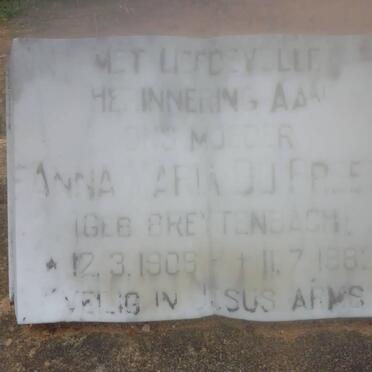 MET LIEFDEVOLLE
HERINNERING AAN
ONS MOEDER
ANNA MARIA DU PREEZ
(GEB BREYTENBACH)
* 12.3.1909 - † 11.7.198
VEILIG IN JESUS ARMS